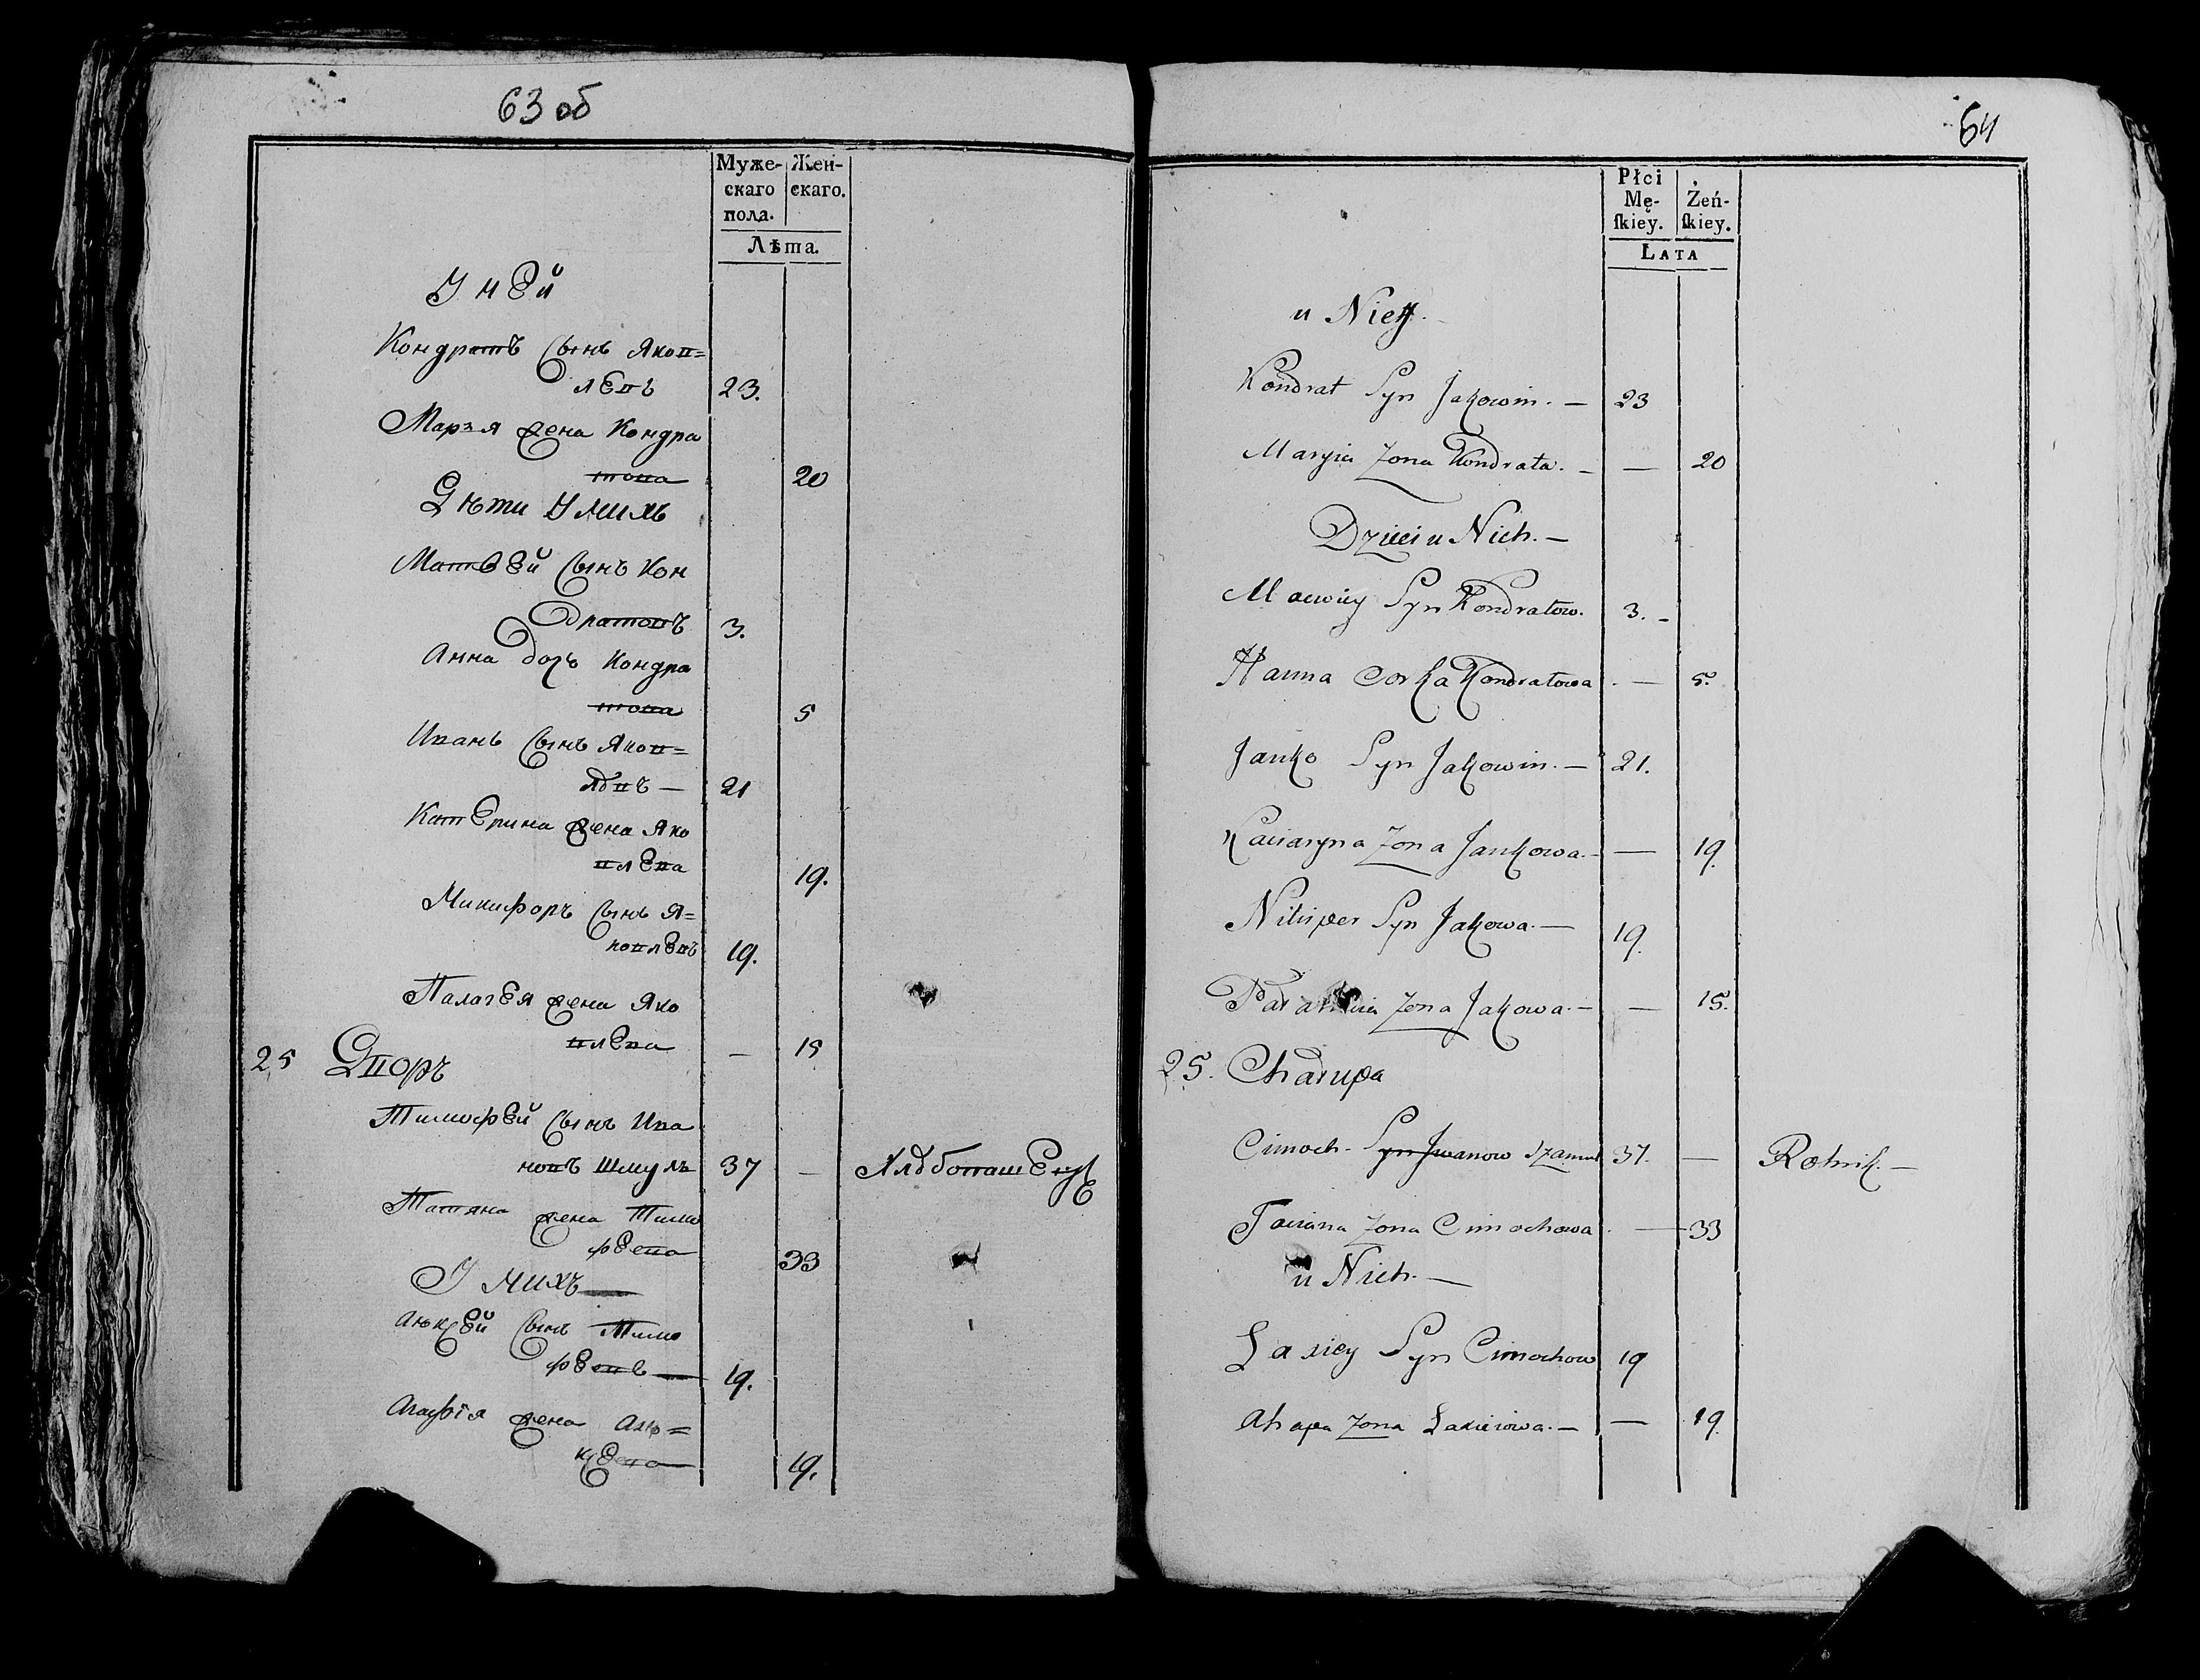 63 об
Муже-
скаго
пола.
Жен-
скаго.
Лѣта.
У ней
Кондратъ сынъ Яков=
левъ 23.
Марья жена Кондра
това 20
Дѣти У нихъ
Матвей сынъ Кон
дратовъ 3.
Анна дочь Кондра
това 5
Иванъ сынъ Яков=
левъ — 21
Катерина жена Яко
влева 19.
Микифоръ сынъ Я=
ковлевъ 19.
Палагея жена Яко
влева — 15
25 Дворъ
Тимофей сынъ Ива
новъ Шмулъ 37 —
Татяна жена Тимо
феева 33
У нихъ
Алексей сынъ Тимо
феевъ 19.
Агафія жена Але=
ксеева 19.
64
Płci
Mę-
ſkiey.
Żeń-
ſkiey.
LATA
u Niey.
Kondrat Syn Jakowin. — 23
Maryia Zona Kondrata. — — 20
Dzieci u Nich. —
Maciwiey Syn Kondratow. 3. -
Hanna Corka Kondratowa . — 5.
Janko Syn Jakowin. — 21.
Kaciaryna Zona Jankowa. — — 19.
Nikiper Syn Jakowa. — 19.
Zona Jakowa. — — 15.
25. Chałupa
Cimoch. Syn Iwanow Szamul 37. — Rolnik. —
Taciana Zona Cimochowa . — 33
u Nich. —
Łaxiey Syn Cimochow 19
Ahapa Zona Łaxieiowa. — — 19.